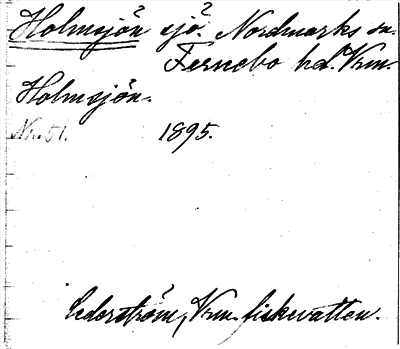 Holmsjön sjö? Nordmarks sn.
Fernebo hd. Vrm.
Holmsjön.
Nr. 51. 1895.
Cederström, Vrm. fiskevatten.